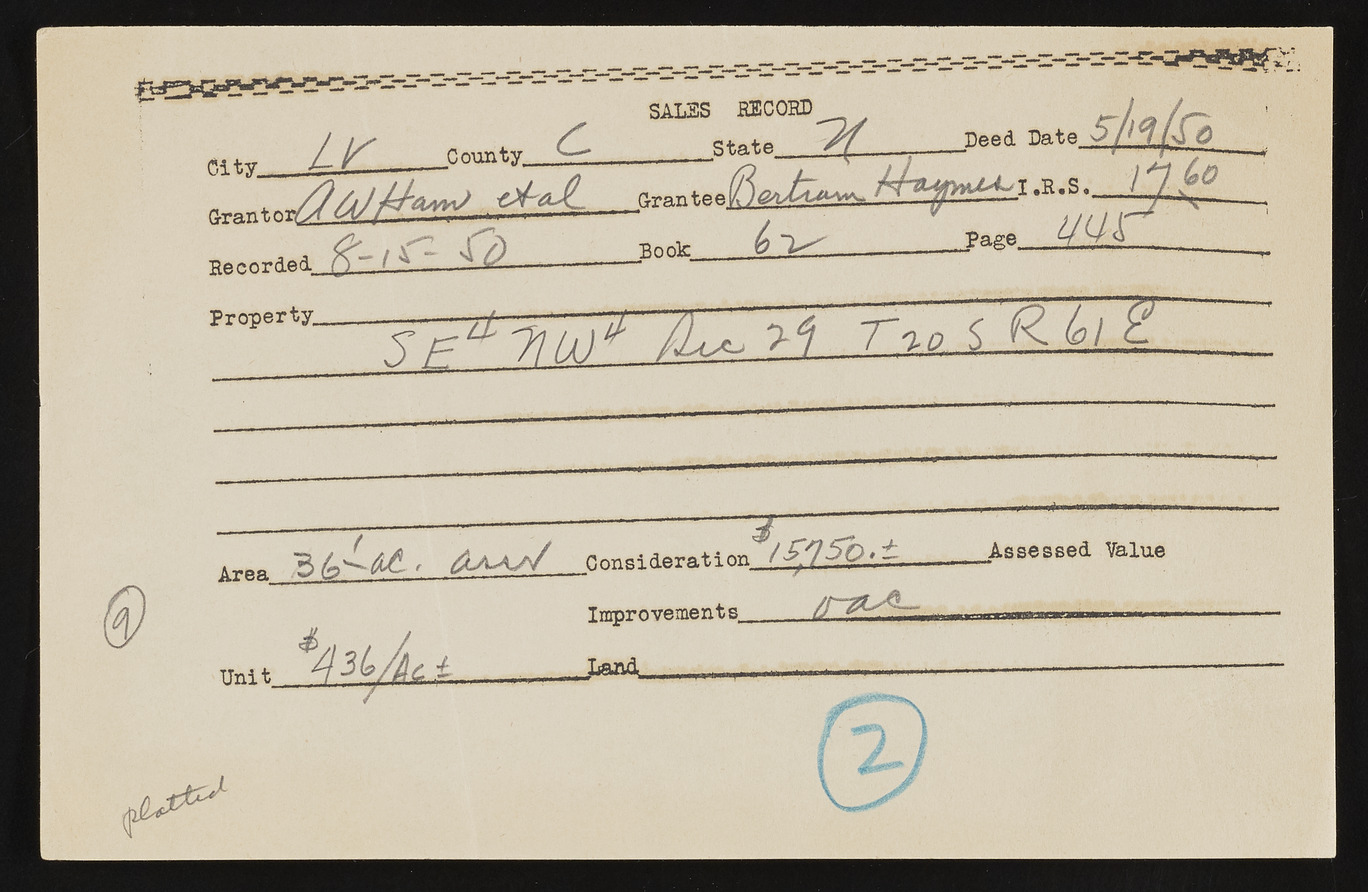 SALES RECORD
City LV County C State N Deed Date 5/19/50
Grantor AW Ham et al Grantee Bertram Haymes I.R.S. 17 60
Recorded 8-15-50 Book 62 Page 445
Property
SE4 NW4 Sec 29 T 20 S R 61 E
Area 36 ac. Consideration $15,750.± Assessed Value
Improvements vac
9
Unit $436/Ac ± Land
2
platted